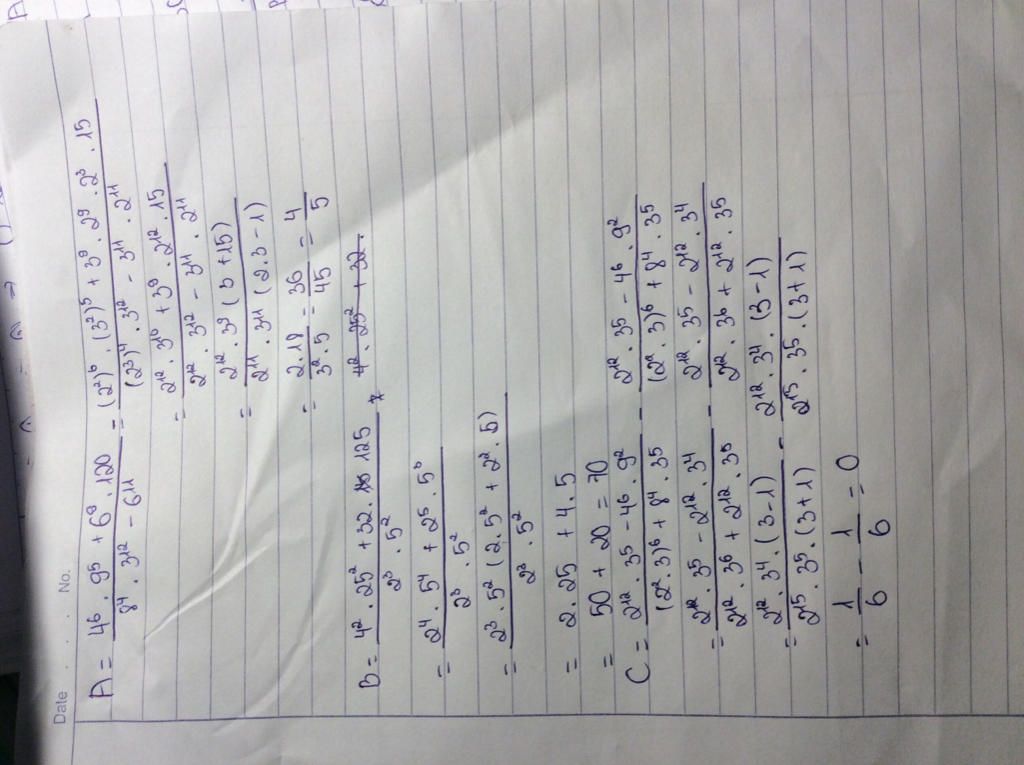 Date No.
A = 4⁶ . 9⁵ + 6⁹ . 120 / 8⁴ . 3¹² - 6¹¹ = (2²)⁶ . (3²)⁵ + 3⁹ . 2⁹ . 2³ . 15 / (2³)⁴ . 3¹² - 3¹¹ . 2¹¹
= 2¹² . 3¹⁰ + 3⁹ . 2¹² . 15 / 2¹² . 3¹² - 3¹¹ . 2¹¹
= 2¹² . 3⁹ (3 + 15) / 2¹¹ . 3¹¹ (2.3 - 1)
= 2.18 / 3² . 5 = 36 / 45 = 4 / 5
B = 4² . 25² + 32 . 125 / 2³ . 5² 4² . 25² + 32 .
= 2⁴ . 5⁴ + 2⁵ . 5³ / 2³ . 5²
= 2³ . 5² (2 . 5² + 2² . 5) / 2³ . 5²
= 2 . 25 + 4 . 5
= 50 + 20 = 70
C = 2¹² . 3⁵ - 4⁶ . 9² / (2² . 3)⁶ + 8⁴ . 3⁵ - 2¹² . 3⁵ - 4⁶ . 9² / (2² . 3)⁶ + 8⁴ . 3⁵
= 2¹² . 3⁵ - 2¹² . 3⁴ / 2¹² . 3⁶ + 2¹² . 3⁵ - 2¹² . 3⁵ - 2¹² . 3⁴ / 2¹² . 3⁶ + 2¹² . 3⁵
= 2¹² . 3⁴ . (3 - 1) / 2¹⁵ . 3⁵ . (3 + 1) - 2¹² . 3⁴ . (3 - 1) / 2¹⁵ . 3⁵ . (3 + 1)
= 1 / 6 - 1 / 6 = 0